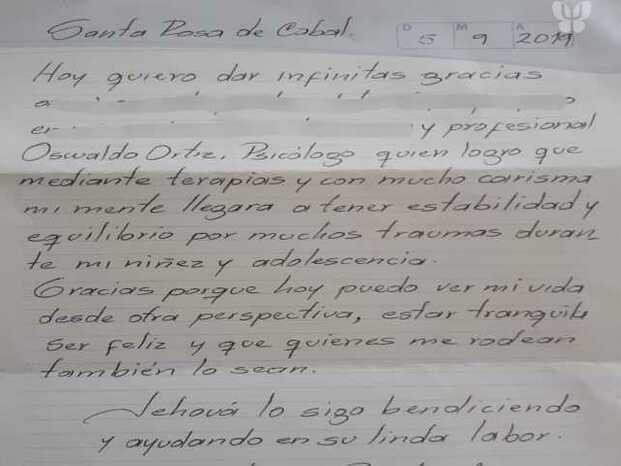 Santa Rosa de Cabal. D 5 M 9 A 2019
Hoy quiero dar infinitas gracias
a
en
y profesional
Oswaldo Ortiz, Psicólogo quien logro que
mediante terapias y con mucho carisma
mi mente llegara a tener estabilidad y
equilibrio por muchos traumas duran
te mi niñez y adolescencia.
Gracias porque hoy puedo ver mi vida
desde otra perspectiva, estar tranquila
ser feliz y que quienes me rodean
también lo sean.
Jehová lo siga bendiciendo
y ayudando en su linda labor.